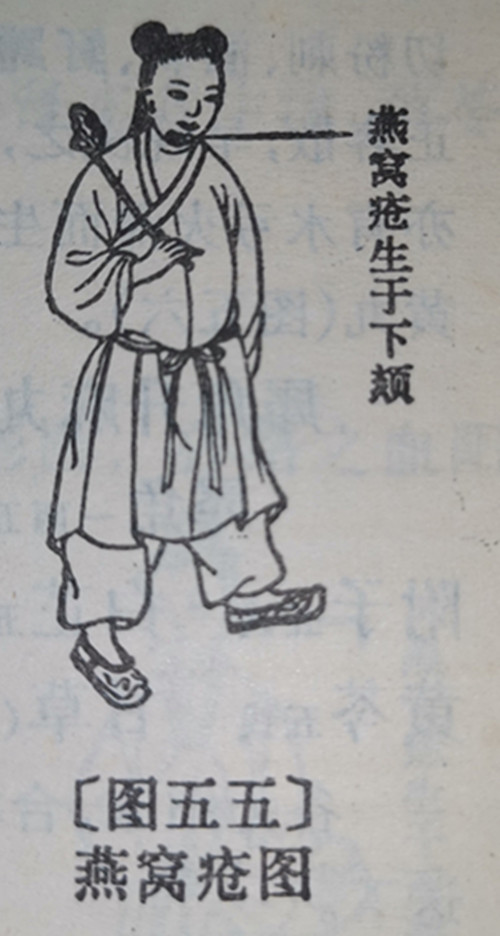 燕窝疮生于下颏
〔图五五〕
燕窝疮图